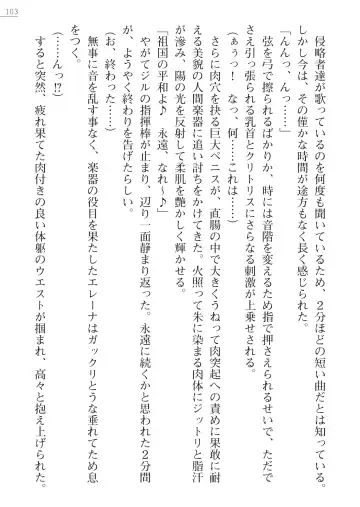 103
侵略者達が歌っているのを何度も聞いているため、２分ほどの短い曲だとは知っている。
しかし今は、その僅かな時間が途方もなく長く感じられた。
「んんっ、んっ……」
弦を弓で擦られるばかりか、時には音階を変えるため指で押さえられるせいで、ただで
さえ引っ張られる乳首とクリトリスにさらなる刺激が上乗せされる。
（ぁぅっ！　なっ、何……これは……）
さらに肉穴を抉る巨大ペニスが、直腸の中で大きくうねって肉突起への責めに果敢に耐
える美貌の人間楽器に追い討ちをかけてきた。火照って朱に染まる肉体にジットリと脂汗
が滲み、陽の光を反射して柔肌を艶かしく輝かせる。
「祖国の平和よ♪　永遠、なれ〜♪」
やがてジルの指揮棒が止まり、辺り一面静まり返った。永遠に続くかと思われた２分間
が、ようやく終わりを告げたらしい。
（お、終わった……）
無事に音を乱す事なく、楽器の役目を果たしたエレーナはガックリとうな垂れてため息
をつく。
（……んっ⁉）
すると突然、疲れ果てた肉付きの良い体躯のウエストが掴まれ、高々と抱え上げられた。